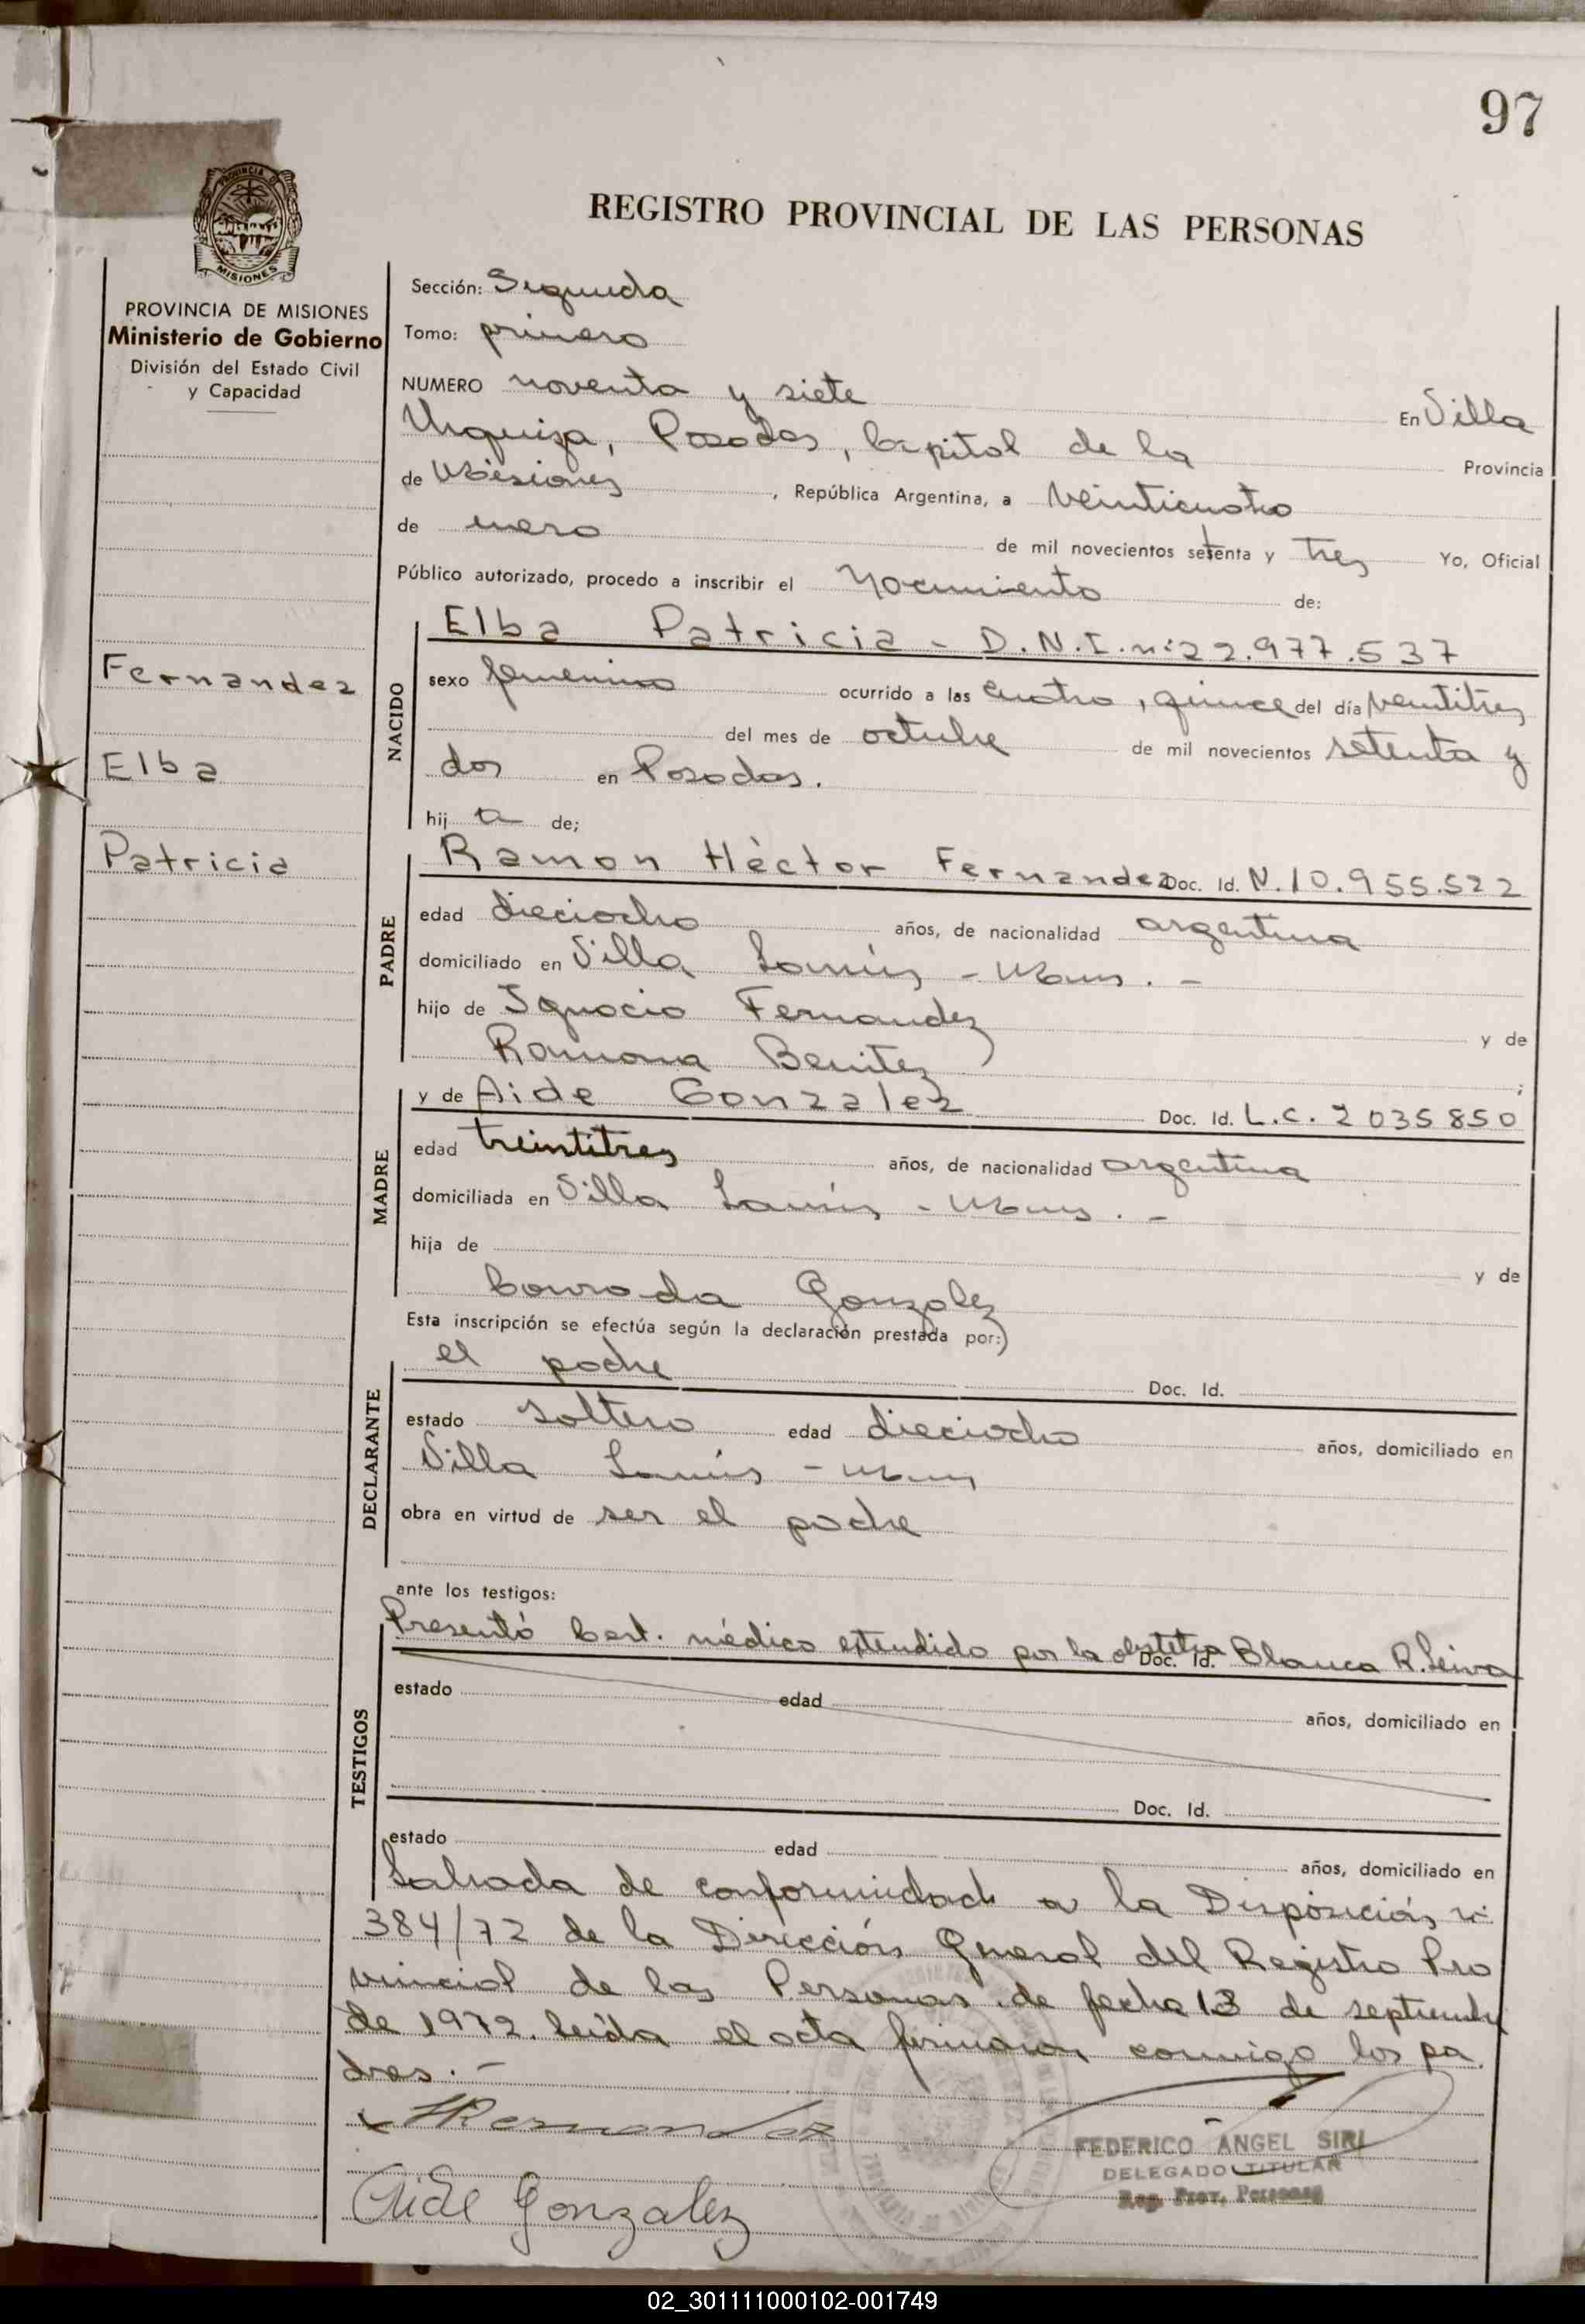 97
PROVINCIA DE
MISIONES
REGISTRO PROVINCIAL DE LAS PERSONAS
PROVINCIA DE MISIONES
Ministerio de Gobierno
División del Estado Civil
y Capacidad
Sección: Segunda
Tomo: primero
NUMERO noventa y siete En Villa
Urquiza, Posadas, Capital de la Provincia
de Misiones, República Argentina, a veinticuatro
de enero de mil novecientos setenta y tres Yo, Oficial
Público autorizado, procedo a inscribir el Nacimiento de:
Fernandez
Elba
Patricia
NACIDO
Elba Patricia - D.N.I. n: 22.977.537
sexo femenino ocurrido a las cuatro, quince del día veintitres
del mes de octubre de mil novecientos setenta y
dos en Posadas.
hij a de;
PADRE
Ramon Hèctor Fernandez Doc. Id. N.10.955.522
edad dieciocho años, de nacionalidad argentina
domiciliado en Villa Lanús - Mnes. -
hijo de Ignacio Fernandez y de
Ramona Benitez ;
MADRE
y de Aide Gonzalez Doc. Id. L.C. 2035850
edad treintitres años, de nacionalidad argentina
domiciliada en Villa Lanús - Mnes. -
hija de y de
Conrada Gonzalez
Esta inscripción se efectúa según la declaración prestada por:
DECLARANTE
el padre Doc. Id.
estado soltero edad dieciocho años, domiciliado en
Villa Lanús - Mnes
obra en virtud de ser el padre
ante los testigos:
TESTIGOS
Presentó Cert. médico extendido por la obstetra Doc. Id. Blanca R. Leiva
estado edad años, domiciliado en
Doc. Id.
estado edad años, domiciliado en
Labrada de conformidad a la Disposición n:
384/72 de la Dirección General del Registro Pro
vincial de las Personas de fecha 13 de septiembre
de 1972. leída el acta firmaron conmigo los pa
dres. -
Aide Gonzalez
FEDERICO ANGEL SIRI
DELEGADO TITULAR
Reg. Prov. Personas
02_301111000102-001749